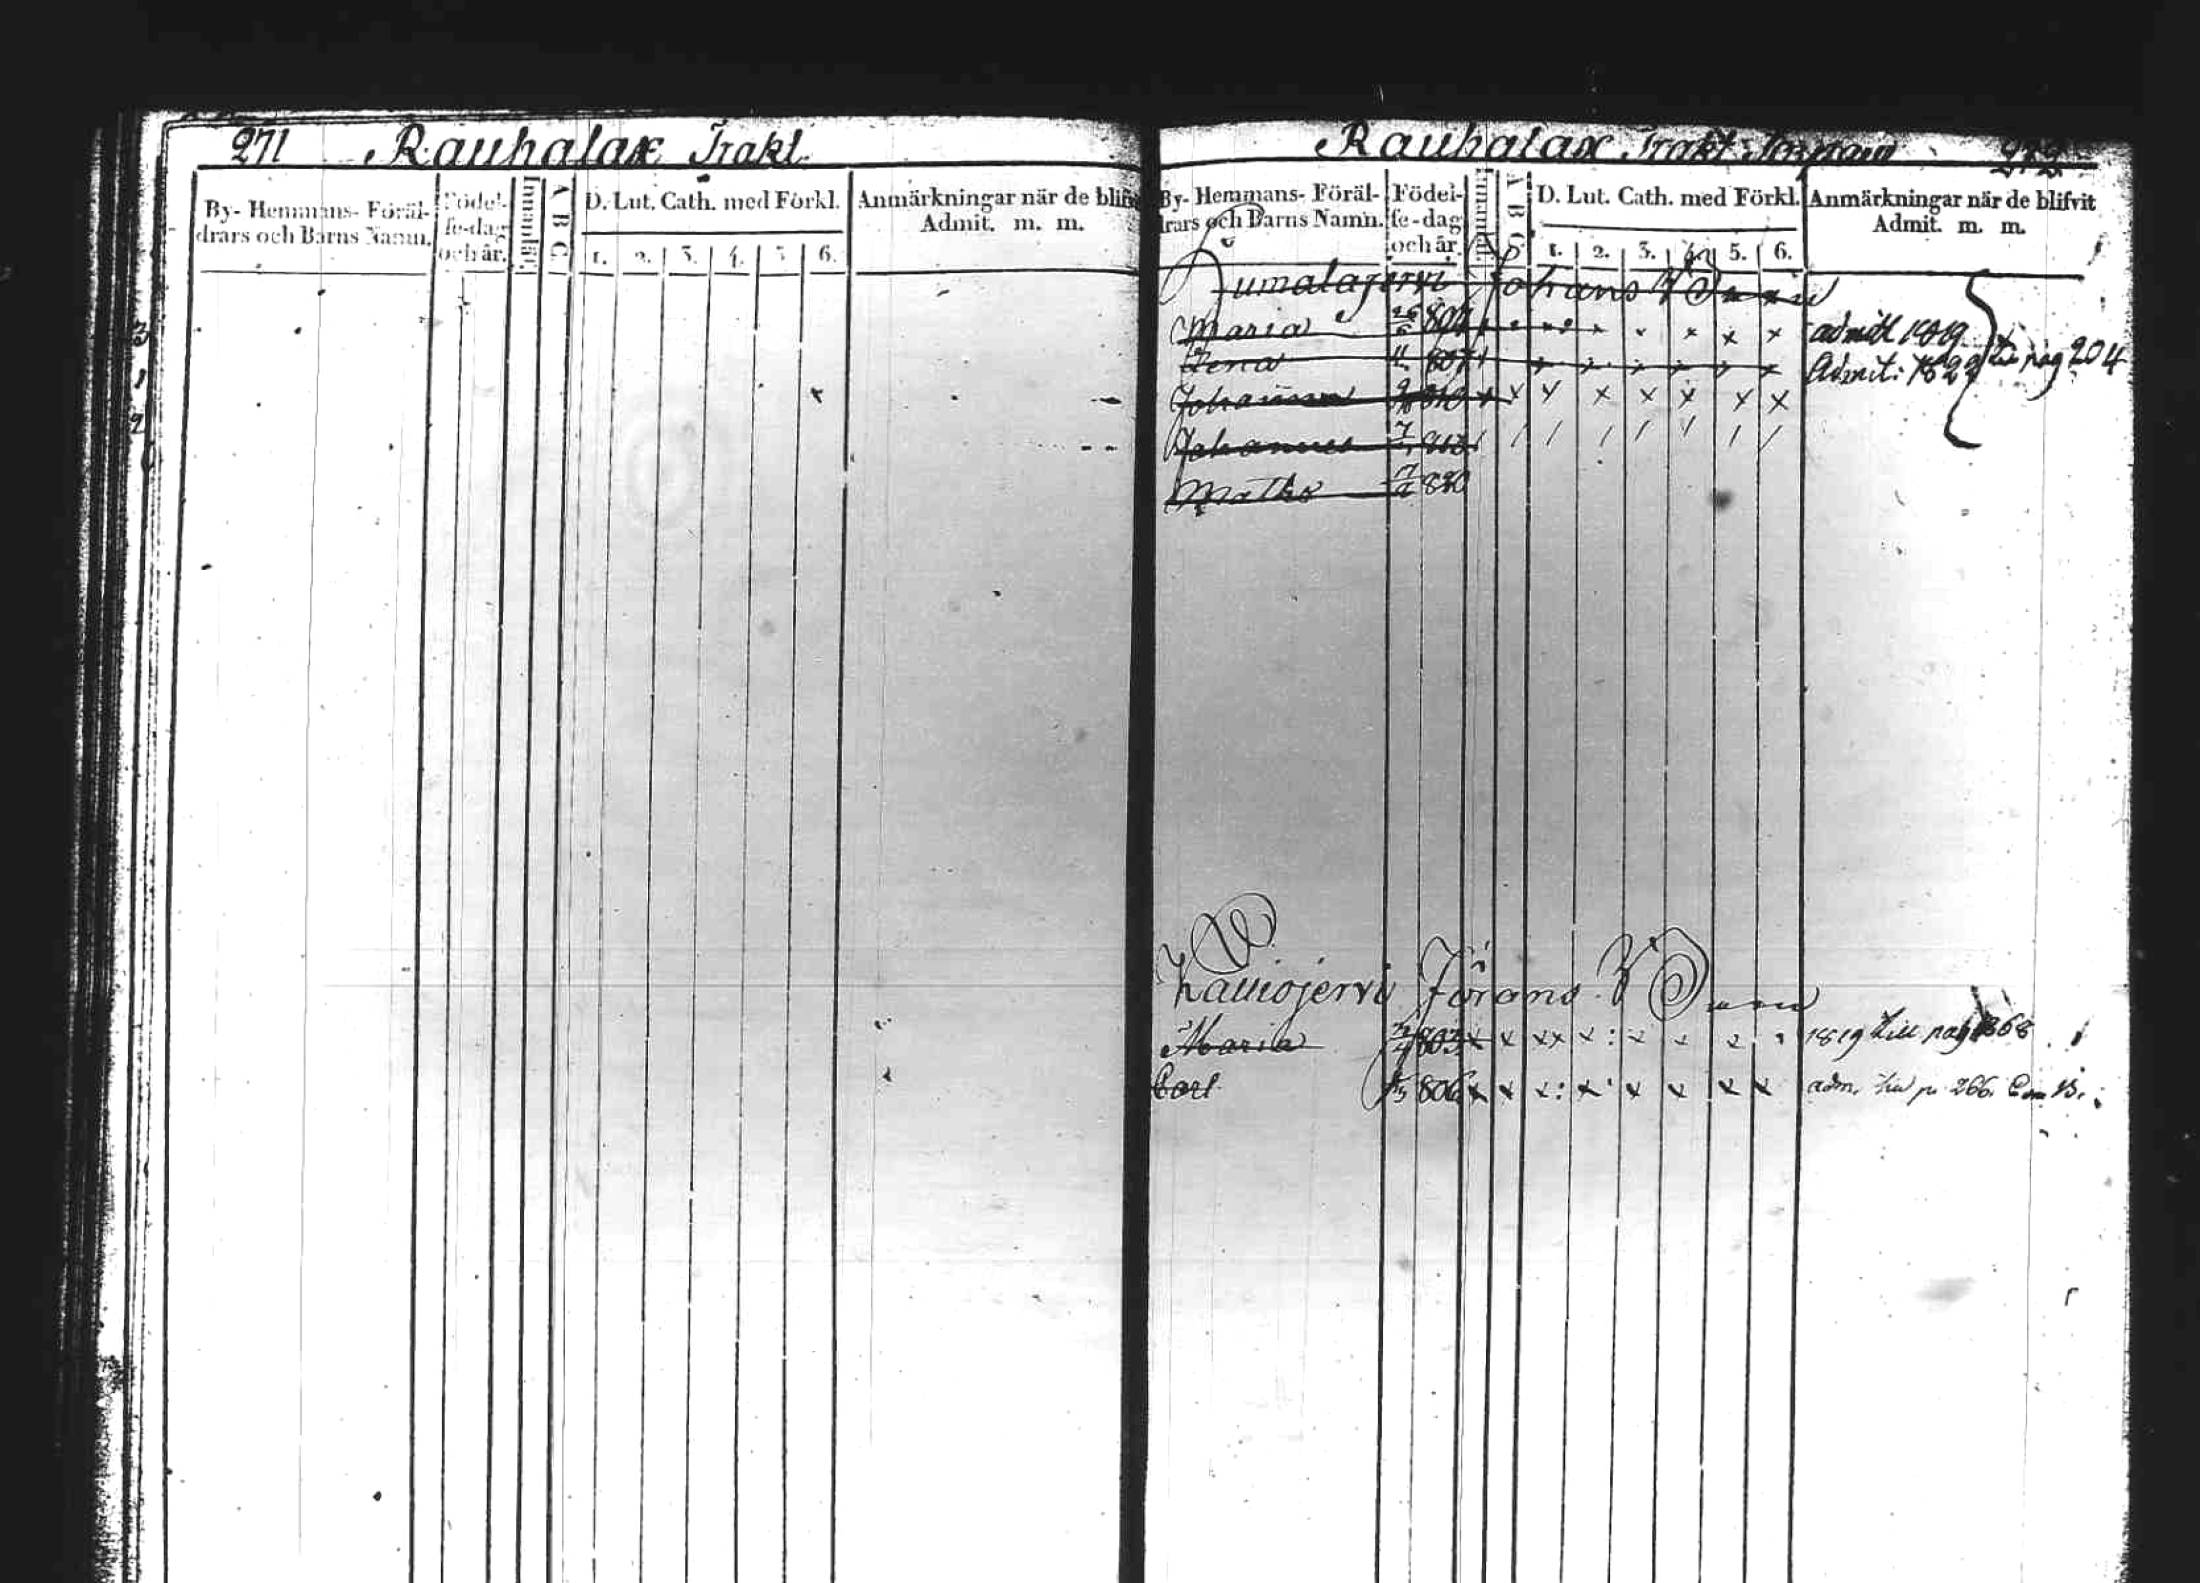 271 Rauhalax Trakt
By- Hemmans- Föräl- drars och Barns Namn.
Födel- se-dag och år.
Innanläs.
A B C
D. Lut. Cath. med Förkl.
1. 2. 3. 4. 5 6.
Anmärkningar när de blifvit
Admit. m. m.
Rauhalax Trakt 272
By- Hemmans- Föräl- drars och Barns Namn.
Födel- se-dag och år.
Innanläs.
A B C
D. Lut. Cath. med Förkl.
1. 2. 3. 4. 5. 6.
Anmärkningar när de blifvit
Admit. m. m.
Jumalajervi Johans
Maria 26/5 804 x x x x admitt 1819
Lena 11 807 x x x x x x Admit: 1822 till pag 204
Johannes 810 x x x x x x x x
Johannes 7 / / / / / / / /
Maths 830
Kauiojervi Jörans
Maria 803 x x xx x : x x x 1819 till pag 268
Carl 806 x x x: x x x x x adm. till p. 266.